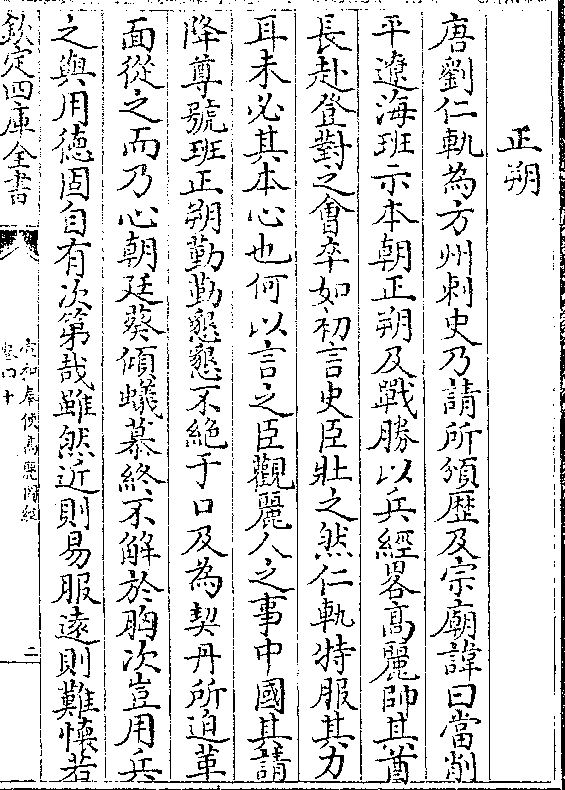 正朔
唐劉仁軌為方州刺史乃請所頒歴及宗廟諱曰當削
平遼海班示本朝正朔及戰勝以兵經畧髙麗帥其酋
長赴登對之會卒如初言史臣壯之然仁軌特服其力
耳未必其本心也何以言之臣觀麗人之事中國其請
降尊號班正朔勤勤懇懇不絶于口及為契丹所迫革
面從之而乃心朝廷葵傾蟻慕終不解於胸次豈用兵
之與用徳固自有次第哉雖然近則易服逺則難懐若
欽定四庫全書
宣和奉使髙麗圖經
卷四十
二